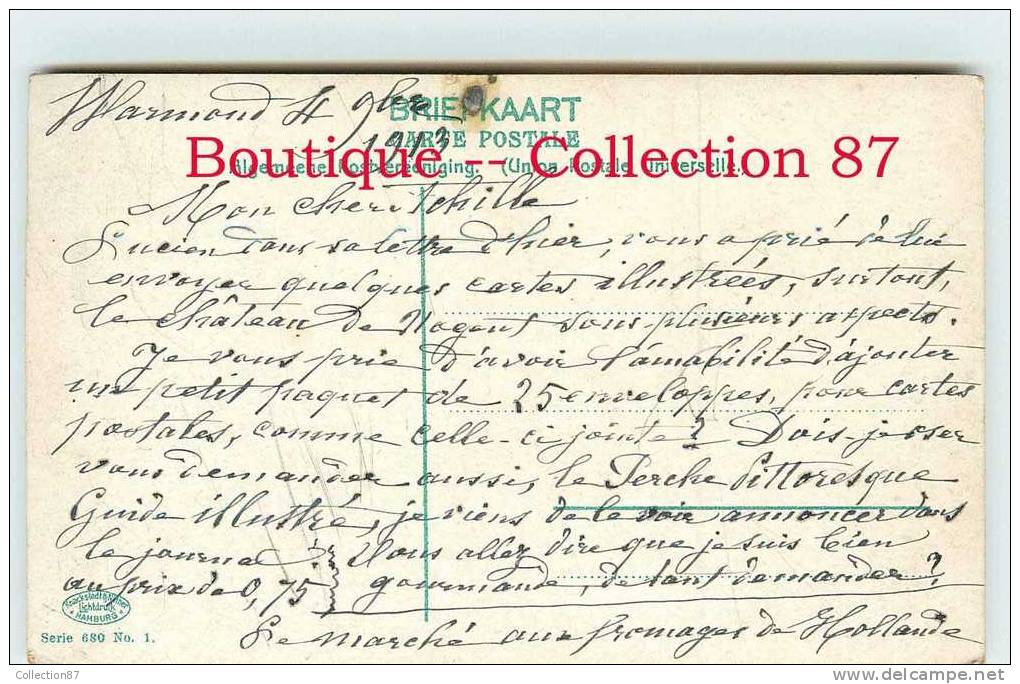 Warmond 4 9bre
1913
BRIEFKAART
CARTE POSTALE
Algemeene Postvereeniging. (Union Postale Universelle.)
Boutique -- Collection 87
Mon cher Achille
Lucien dans sa lettre d'hier, vous a prié de lui
envoyer quelques cartes illustrées, surtout,
le château de Nogent sous plusieurs aspects.
Je vous prie d'avoir l'amabilité d'ajouter
un petit paquet de 25 enveloppes, pour cartes
postales, comme celle-ci jointe? Dois-je oser
vous demander aussi, le Perche Pittoresque
Guide illustré, je viens de le voir annoncer dans
le journal
au prix de 0,75
Vous allez dire que je suis bien
gourmande, de tant demander?
Le marché aux fromages de Hollande
Knackstedt & Näther
Lichtdruck
HAMBURG
Serie 680 No. 1.
Collection87
www.delcampe.net